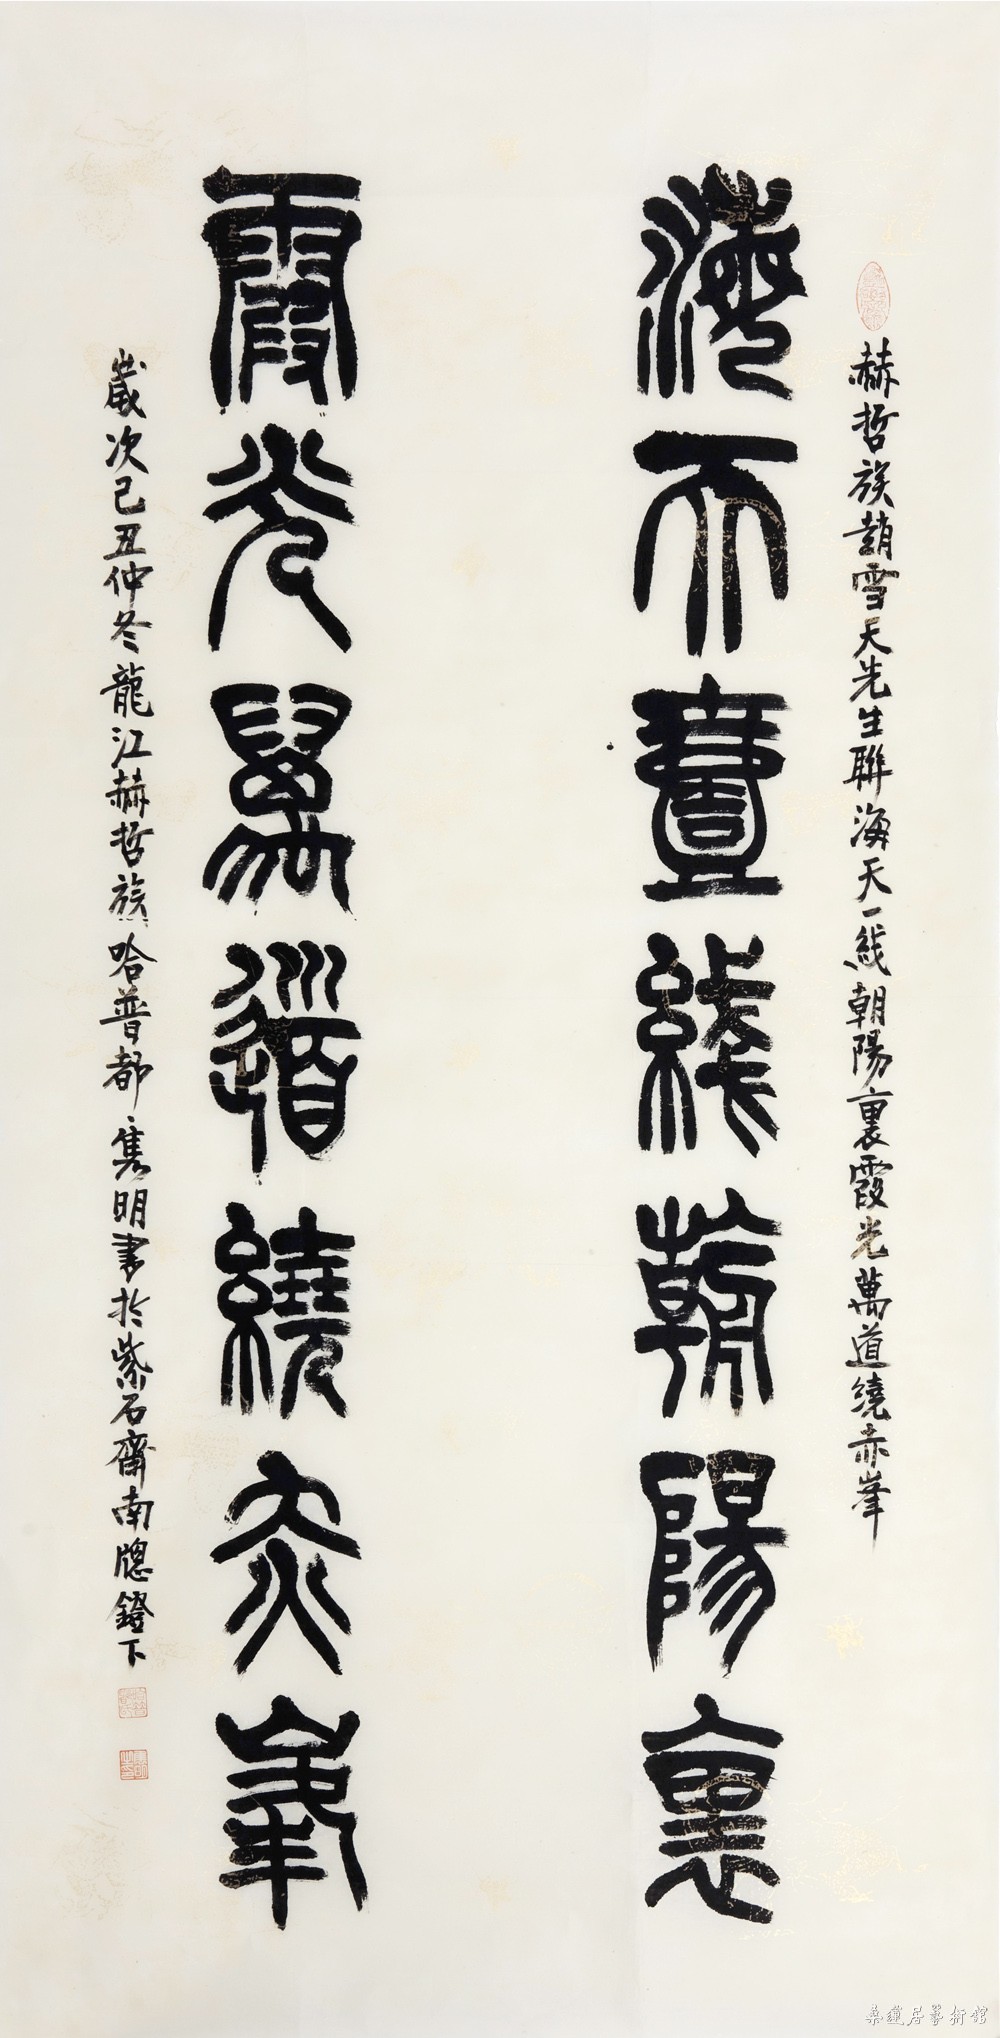 赫哲族趙雪天先生聯海天一线朝陽裏霞光萬道繞赤峯
海天壹綫朝陽裏
霞光萬道繞赤峯
歲次己丑仲冬龍江赫哲族哈普都·隽明書於紫石齋南牕鐙下
桑蓮居藝術館